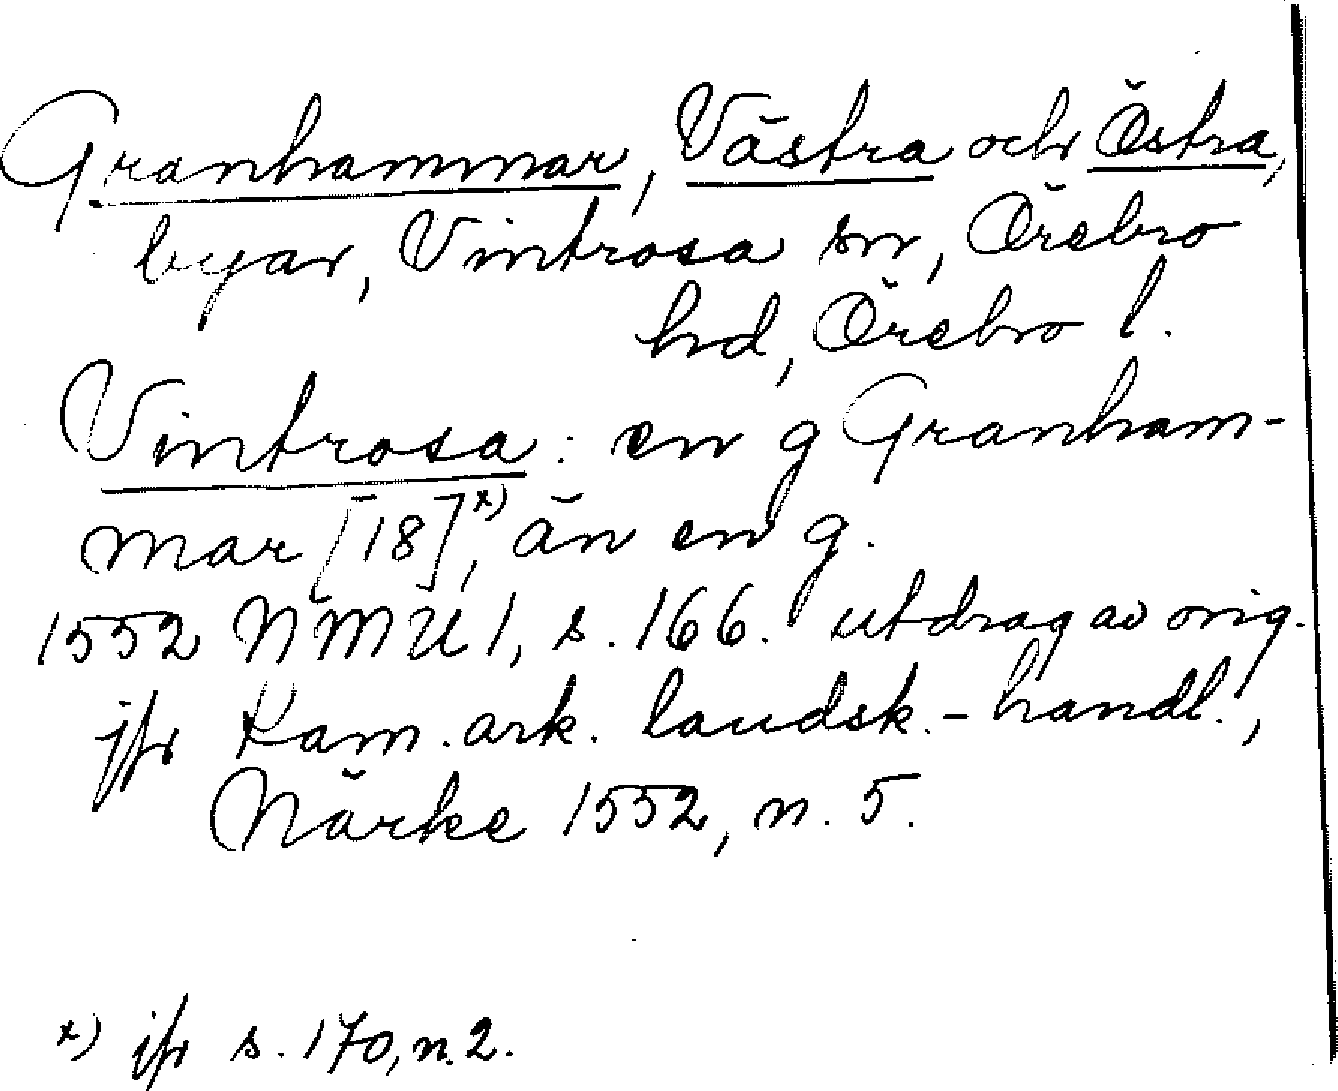 Granhammar, Västra och Östra,
byar, Vintrosa sn, Örebro
hd, Örebro l.
Vintrosa: en g Granham-
mar [18]x), än en g.
1552 NMU 1, s. 166. utdrag av orig.
jfr Kam. ark. landsk.-handl.,
Närke 1552, n. 5.
x) jfr s. 170, n. 2.